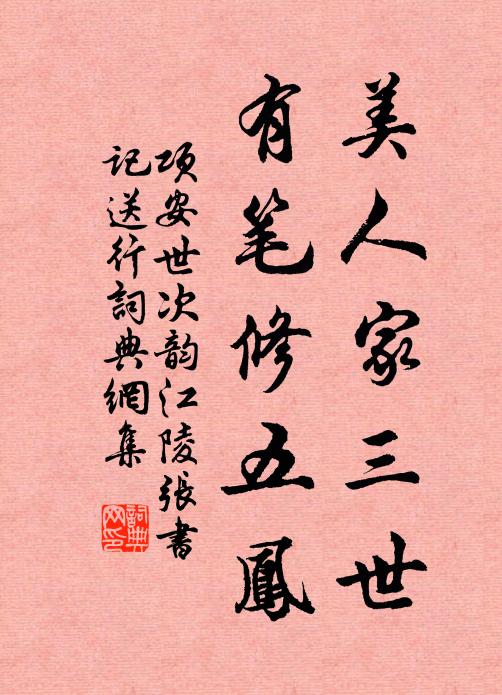 美人家三世
有笔修五鳳
项安世次韵江陵張書
记送行詞典網集
詞典
网印